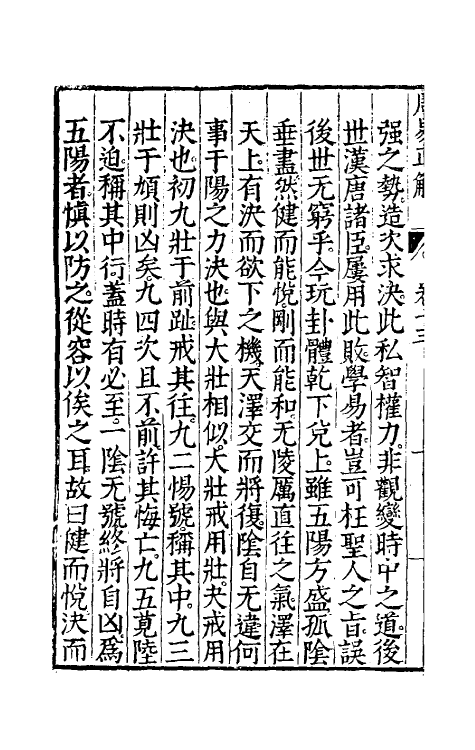 周易正解　卷十三
强之勢造次求決此私智權力非觀變時中之道後
世漢唐諸臣屢用此敗學易者豈可枉聖人之旨誤
後世无窮乎今玩卦體乾下兌上雖五陽方盛孤陰
垂盡然健而能悅剛而能和无陵厲直往之氣澤在
天上有決而欲下之機天澤交而將復陰自无違何
事于陽之力決也與大壯相似大壯戒用壯夬戒用
決也初九壯于前趾戒其往九二惕號稱其中九三
壯于頄則凶矣九四次且不前許其悔亡九五莧陸
不迫稱其中行蓋時有必至一陰无號終將自凶爲
五陽者愼以防之從容以俟之耳故曰健而悅決而